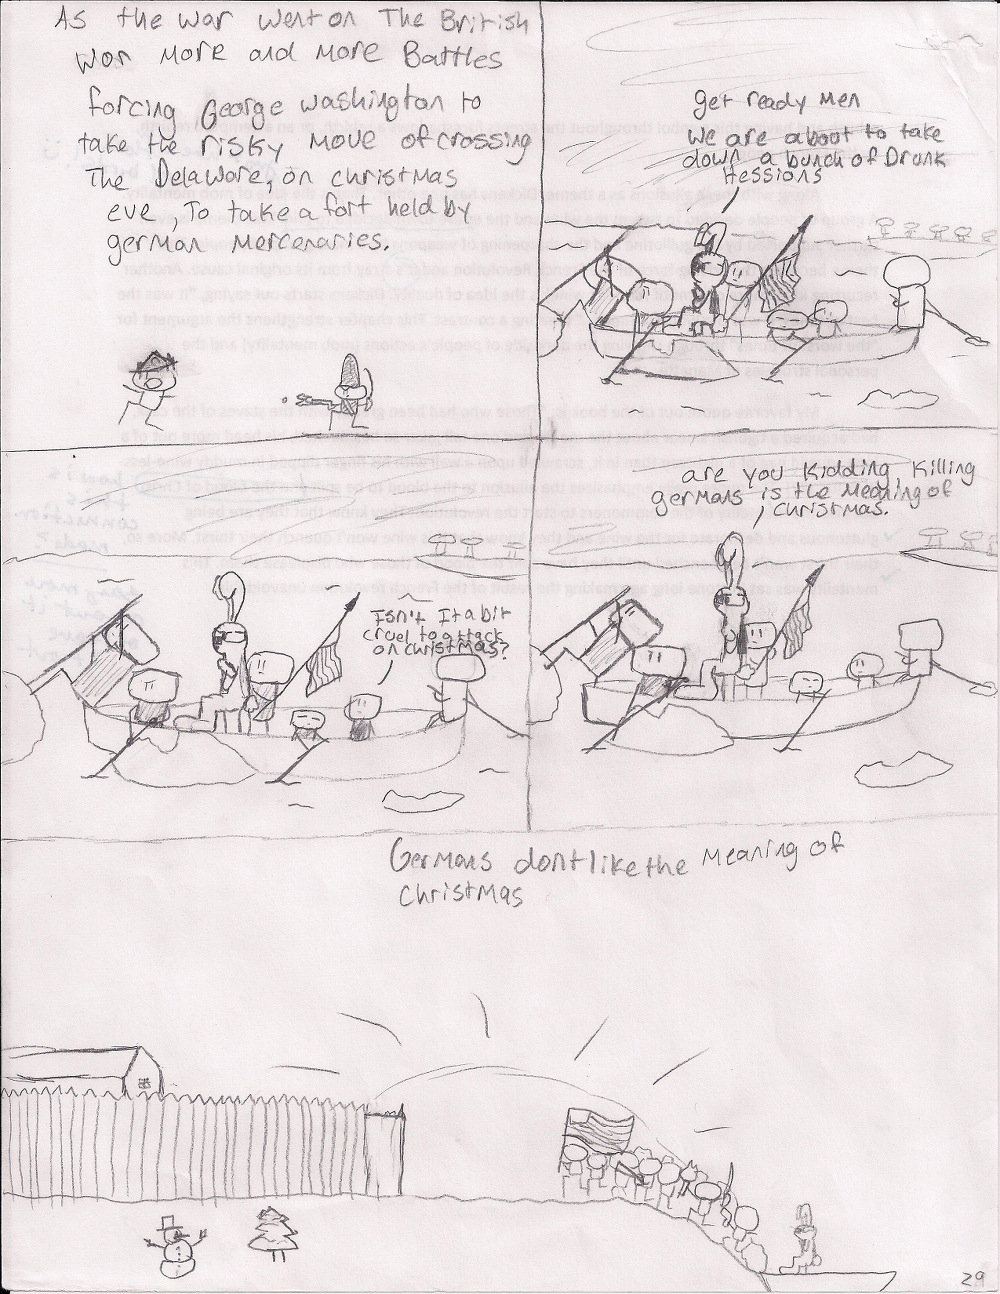 As the war went on The British
won more and more Battles
forcing George washington to
take the risky move of crossing
The Delaware, on christmas
eve, To take a fort held by
german mercenaries.
get ready men
we are about to take
down a bunch of Drunk
Hessions
Isn't It a bit
cruel to attack
on christmas?
are you kidding killing
germans is the meaning of
christmas.
Germans dont like the meaning of
christmas
29